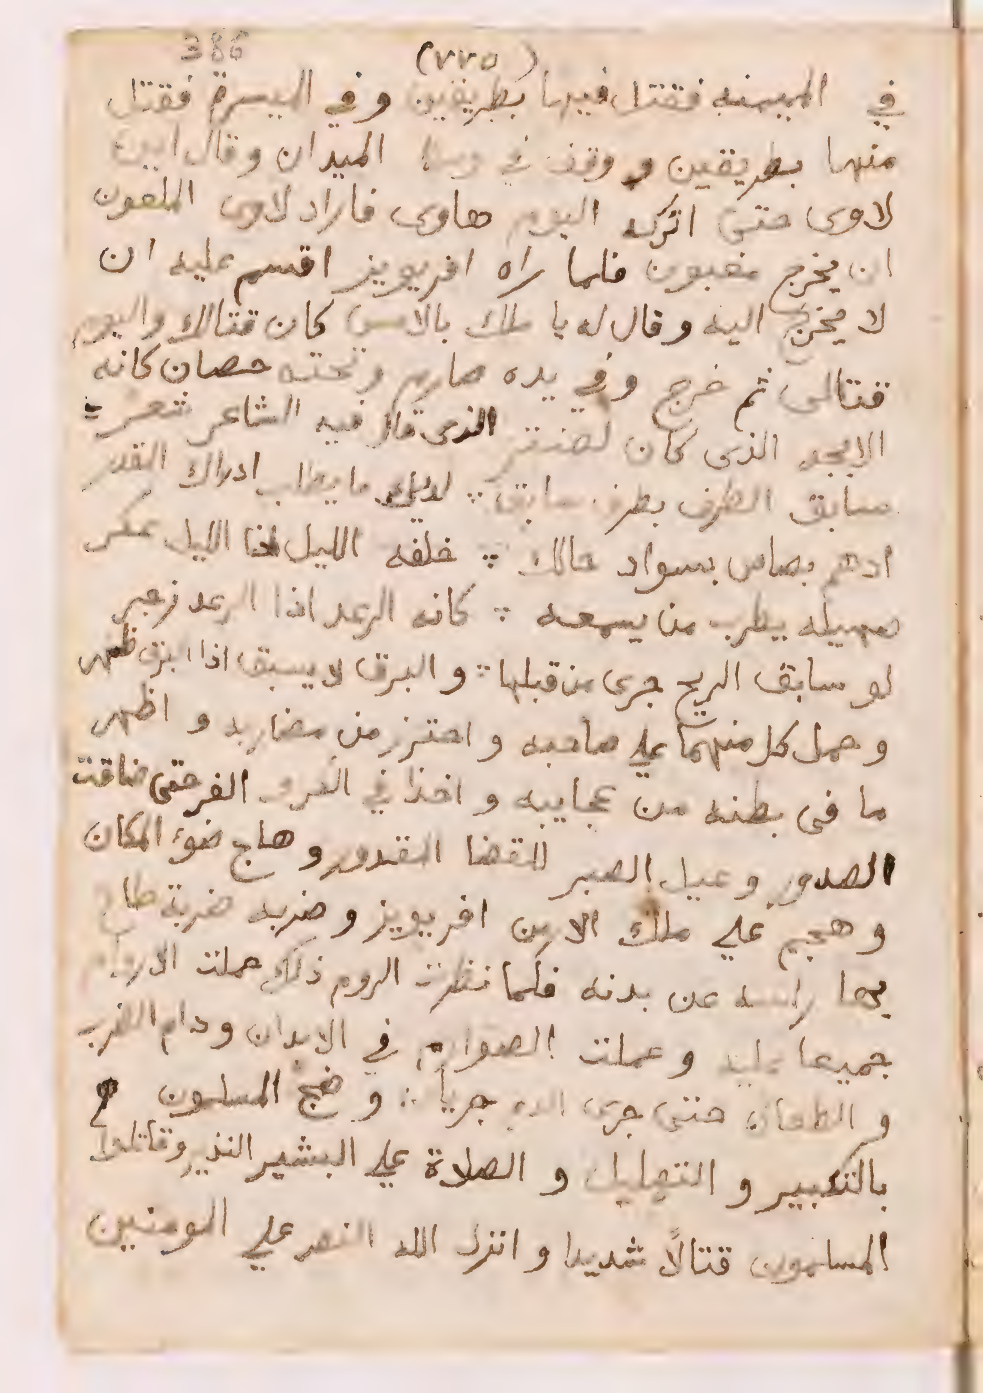 386
(٧٧٥)
في الميمنه فقتل فيها بطريقين وفي الميسرة فقتل
منها بطريقين و وقف في وسط الميدان وقال اين
لاوى حتى اتركه اليوم هاوى فاراد لاوى الملعون
ان يخرج مغبون فلما راه افريويز اقسم عليه ان
لا يخرج اليه وقال له يا ملك بالامس كان قتالك واليوم
قتالى ثم خرج وفي يده صارم وتحته حصان كانه
الابجر الذى كان لعنتر الذى قال فيه الشاعر شعر
سابق الطرف بطرف سابق ∴ لديك ما يطلب ادراك القدر
ادهم بصاص بسواد حالك ∴ خلفه الليل اذا الليل عكر
صهيله يطرب من يسمعه ∴ كانه الرعد اذا الرعد زمجر
لو سابق الريح جرى من قبلها ∴ و البرق لا يسبق اذا البرق ظهر
و حمل كل منهما علي صاحبه و احترز من مضاربه و اظهر
ما فى بطنه من عجايبه و اخذا في الكر و الفر حتى ضاقت
الصدور و عيل الصبر للقضا المقدور و هاج ضوء المكان
و هجم علي ملك الارمن افريويز و ضربه ضربة طاح
بها راسه عن بدنه فلما نظرت الروم ذلك حملت الاروام
جميعا عليه و عملت الصوارم في الابدان و دام الضرب
و الطعان حتى جرى الدم جريان و ضج المسلمون
بالتكبير و التهليل و الصلاة علي البشير النذير وقاتلوا
المسلمون قتالاً شديدا و انزل الله النصر علي المومنين